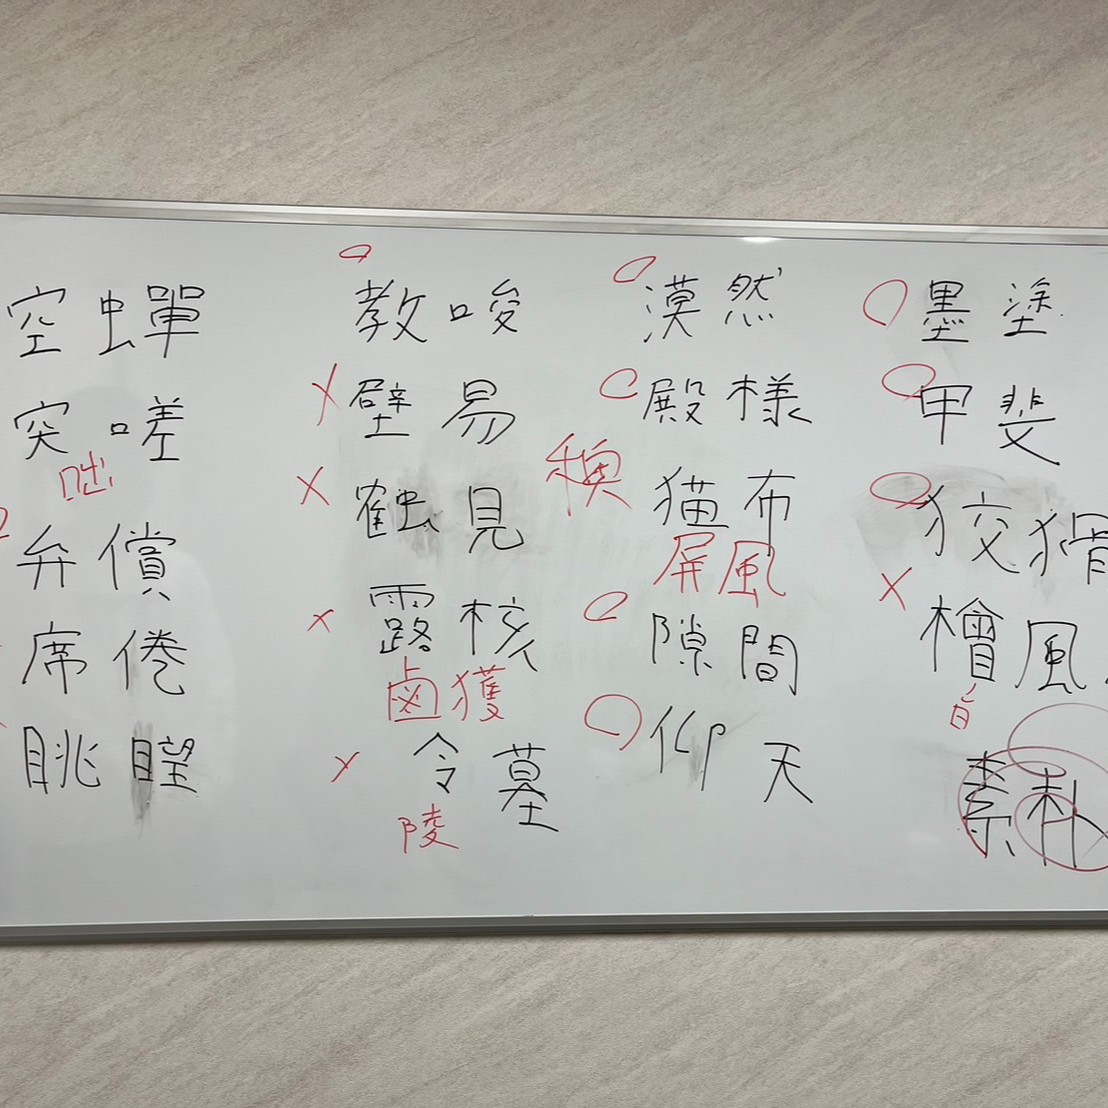 空蟬
突嗟
咄
弁償
席倦
眺
教唆
壁易
見
露核
鹵獲
令墓
陵
漠然
殿様
猫布
屏風
隙間
仰天
墨塗
甲斐
狡猾
檜風
素朴